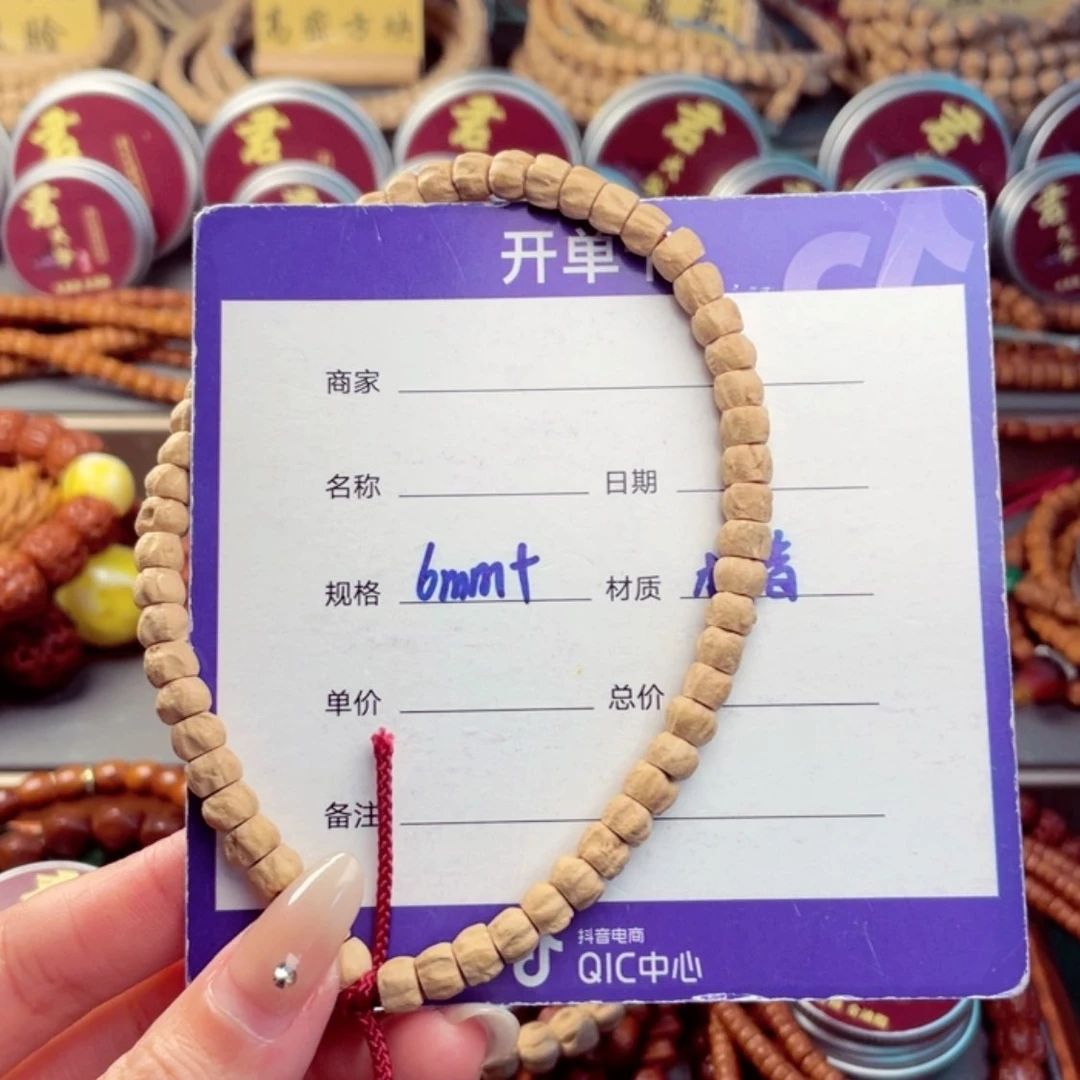 高密方块
开单
商家
名称 日期
规格 6mm+ 材质
单价 总价
备注
抖音电商
QIC中心